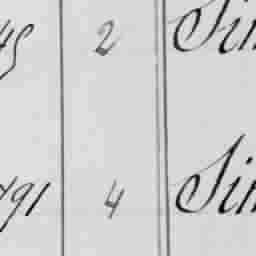 45 2 Sin
491 4 Sin